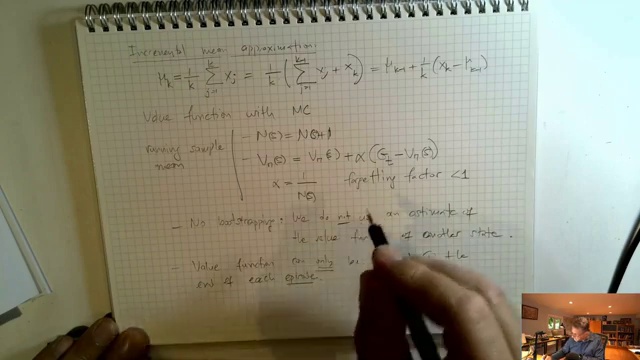 Incremental mean approximation:
μ_k = 1/k Σ_{j=1}^{k} x_j = 1/k ( Σ_{j=1}^{k-1} x_j + x_k ) = μ_{k-1} + 1/k (x_k - μ_{k-1})
Value function with MC
running sample mean
- N(s) = N(s)+1
- V_π(s) = V_π(s) + α (G_t - V_π(s))
α = 1/N(s) forgetting factor < 1
- No bootstrapping: We do not an estimate of
the value of another state.
Value function can only the
end of each episode.